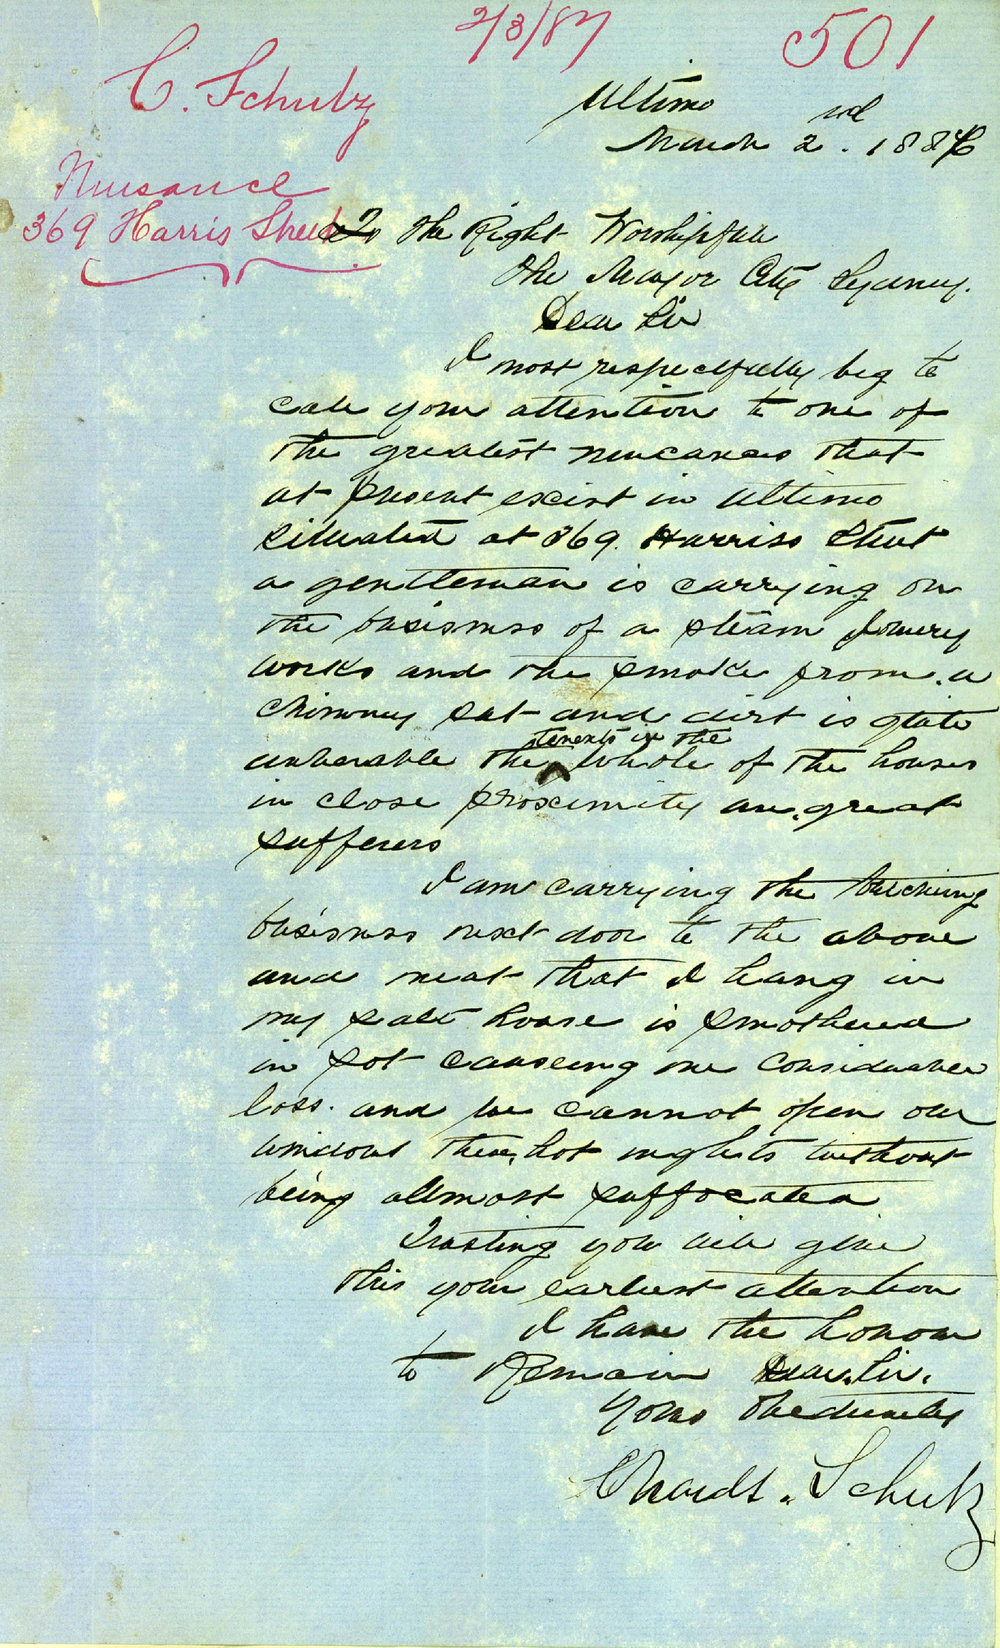 2/3/87
501
C. Schultz
Nuisance
369 Harris Street
Ultimo
March 2nd. 188
To the Right Worshipfull
the Mayor City Sydney.
Dear Sir
I most respectfully beg to
call your attention to one of
the greatest nucances that
at present excist in Ultimo
situated at 369. Harriss Street
a gentleman is carrying on
the busisness of a steam Joinery
works and the smoke from a
chimney sut and dirt is qtite
unbearable the tenents in the whole of the houses
in close proximity are great
sufferers
I am carrying the butching
busisness next door to the above
and meat that I hang in
my salt house is smothered
in sot causeing me considerable
loss. and we cannot open our
windows these hot nights without
being allmost suffocated
Trusting you will give
this your earliest attention
I have the honour
to Remain Dear Sir.
Yours Obediently
Schultz